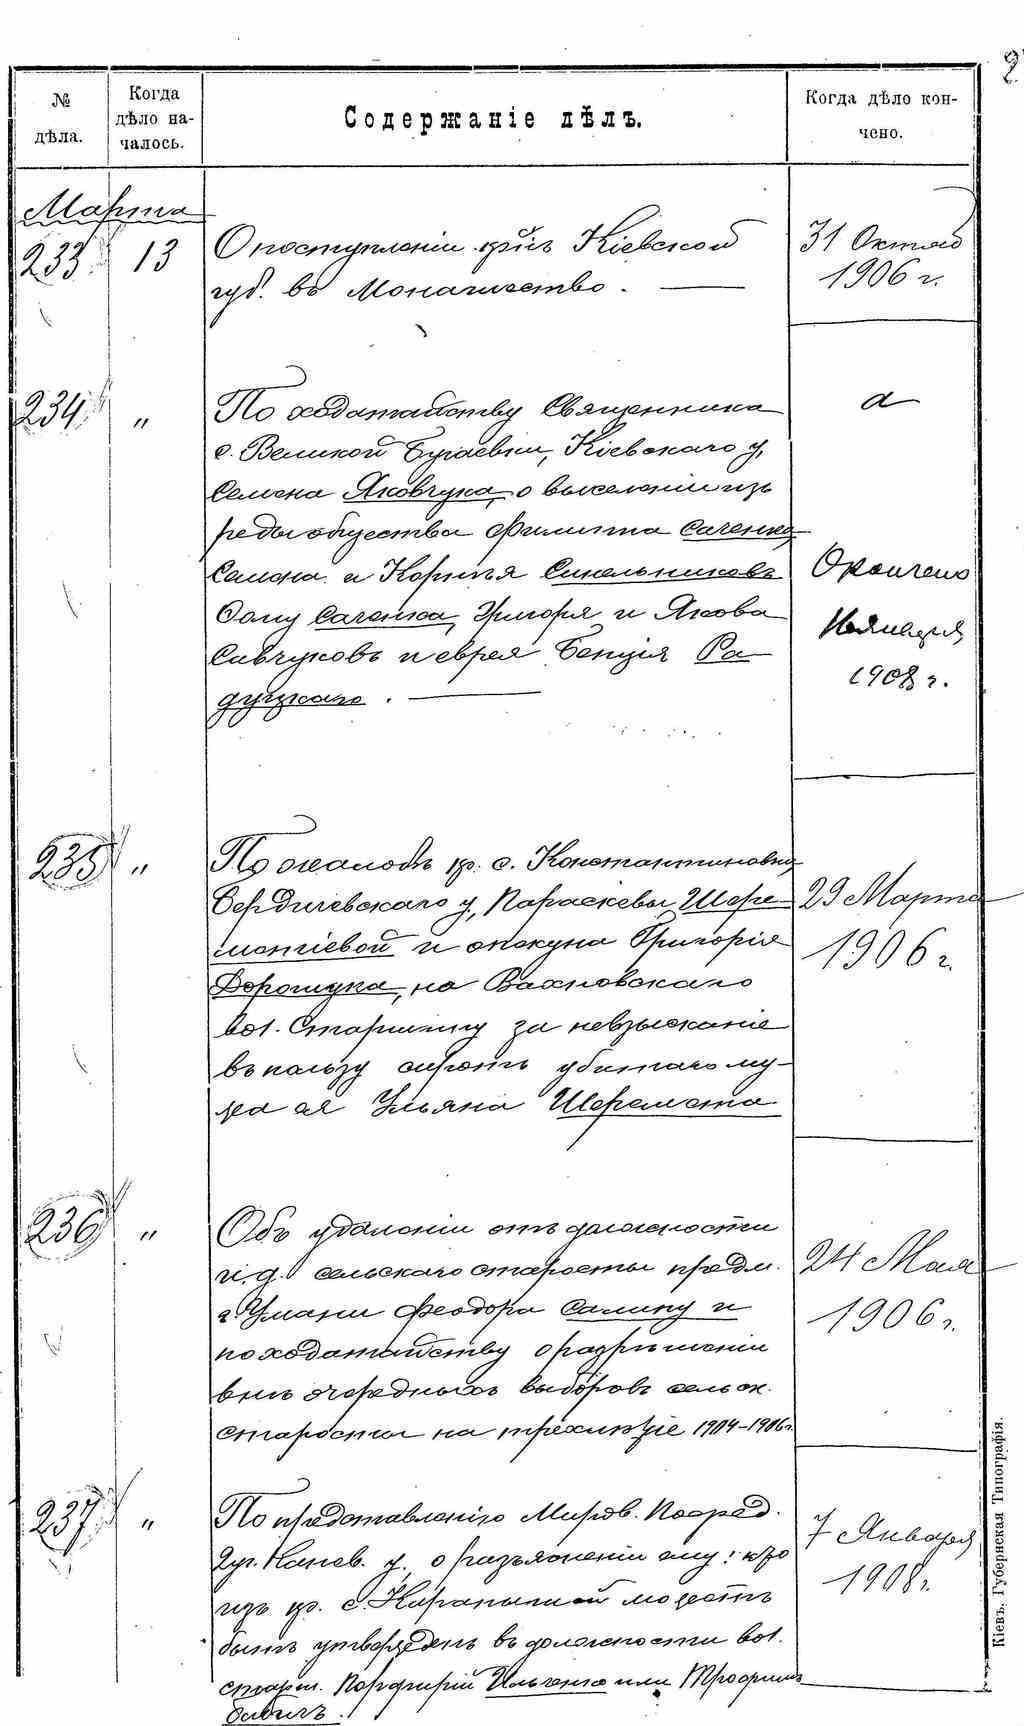 2
№
дѣла.
Когда
дѣло на-
чалось.
Содержаніе дѣлъ.
Когда дѣло кон-
чено.
Марта
233
13
О поступленіи кр. Кіевской
губ. въ Монашество.
31 Октяб
1906 г.
234
"
По ходатайству Священника
с. Великой Бугаевки, Кіевскаго у,
Семена Яковчука, о выселеніи изъ
среды общества Филиппа Саченка,
Семена и Корнія Синельниковъ
Фому Саченка, Григорія и Якова
Савчуковъ и еврея Бенція Ра-
дуцкаго.
Окончено
1908 г.
235
"
По жалобѣ кр. с. Константиновки,
Бердичевскаго у, Параскевы Шере-
метіевой и опекуна Григорія
Дорошука, на Вахновскаго
вол. Старшину за невзысканіе
въ пользу сиротъ убитаго му-
жа ея Ульяна Шеремета
29 Марта
1906 г.
236
"
Объ удаленіи отъ должности
и. д. сельскаго старосты предм.
г. Умани Феодора Салину и
по ходатайству о разрѣшеніи
внѣ очередныхъ выборовъ сельск.
старосты на трехлѣтіе 1904-1906 г.
24 Мая
1906 г.
237
"
По представленію Миров. Посред.
2 уч. Канев. у, о разъясненіи ему: кто
изъ кр. с. Карапышей можетъ
быть утвержденъ въ должности вол.
старш. Порфирій Ильченко или Трофимъ
Бабичъ.
7 Января
1908 г.
Кіевъ. Губернская Типографія.